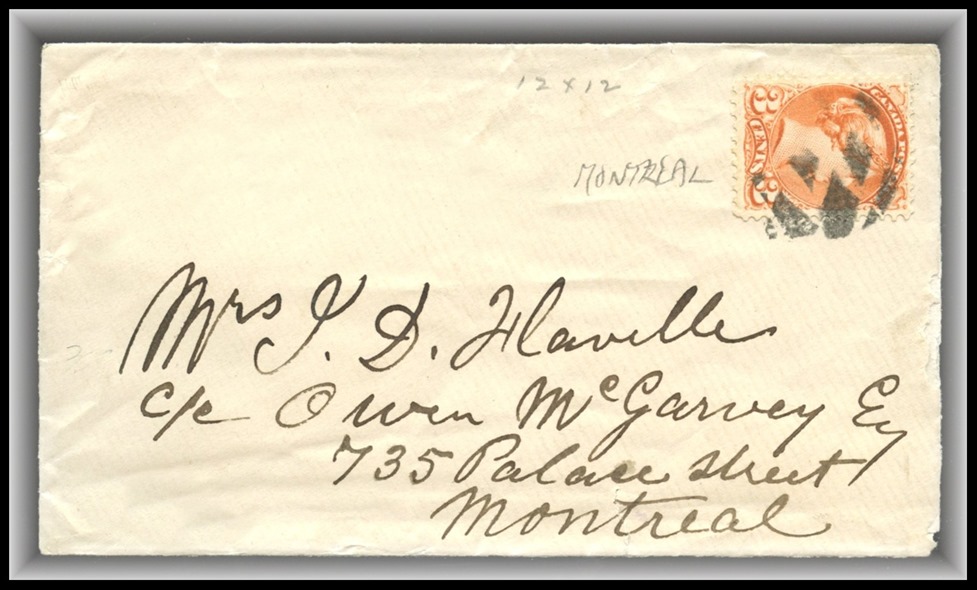 12 x 12
MONTREAL
CANADA POSTAGE
3 CENTS 3
Mrs J. D. Flavelle
c/o Owen McGarvey Esq
735 Palace street
Montreal